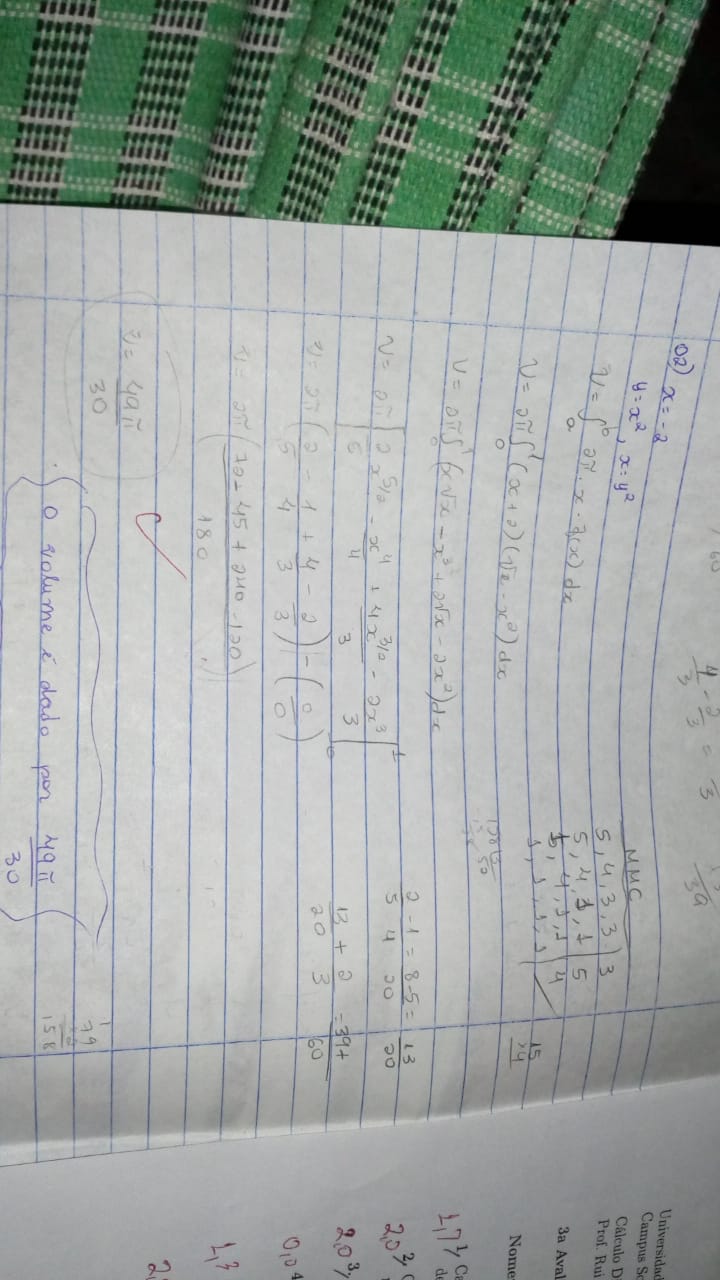 4/3 - 2/3 = /3
02) x = -2
y = x², x = y²
V = ∫_a^b 2π · x · f(x) dx
V = 2π∫_0^1 (x + 2)(√x - x²) dx
V = 2π∫_0^1 (x√x - x³ + 2√x - 2x²) dx
V = 2π[2x^(5/2)/5 - x⁴/4 + 4x^(3/2)/3 - 2x³/3]_0^1
V = 2π(2/5 - 1/4 + 4/3 - 2/3) - (0/0)
V = 2π((72 - 45 + 240 - 120)/180)
V = 49π/30
O volume é dado por 49π/30
MMC
5, 4, 3, 3 | 3
5, 4, 1, 1 | 5
1, 4, 1, 1 | 4
1, 1, 1, 1
15
4
2/5 - 1/4 = 8-5/20 = 13/20
13/20 + 2/3 = 39+/60
1
79
158
Universidad
Campus S
Cálculo D
Prof. Rui
3a Aval
Nome:
1,7 1/ C
de
2,0 2/
2,0 3/
0,0 4
1,3
2,